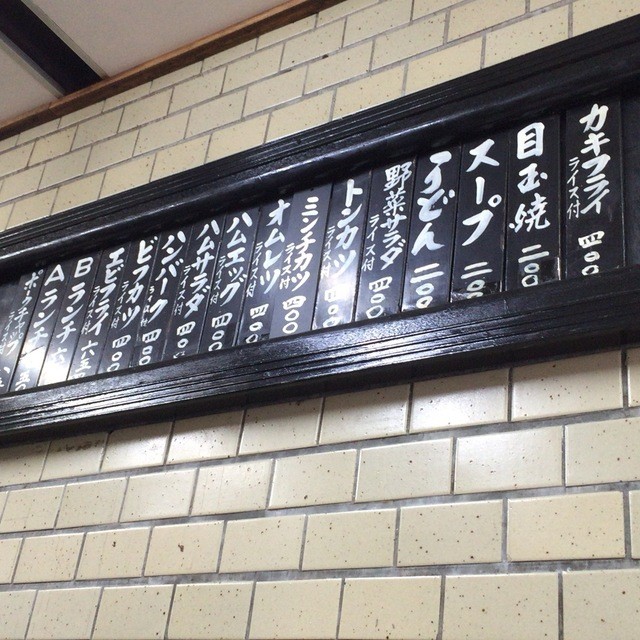 カキフライ ライス付 四〇〇
目玉焼 二〇〇
スープ 二〇〇
うどん 二〇〇
野菜サラダ ライス付 四〇〇
トンカツ ライス付 四〇〇
ミンチカツ ライス付 四〇〇
オムレツ ライス付 四〇〇
ハムエッグ ライス付 四〇〇
ハムサラダ ライス付 四〇〇
ハンバーク ライス付 四〇〇
ビフカツ ライス付 四〇〇
エビフライ ライス付 六五〇
Bランチ
Aランチ